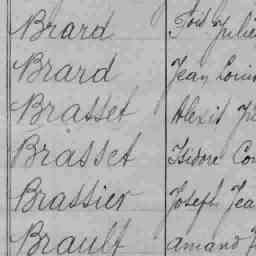 Brard Julie
Brard Jean Louis
Brasset Alexis
Brasset Isidore
Brassier Joseph
Brault Amand